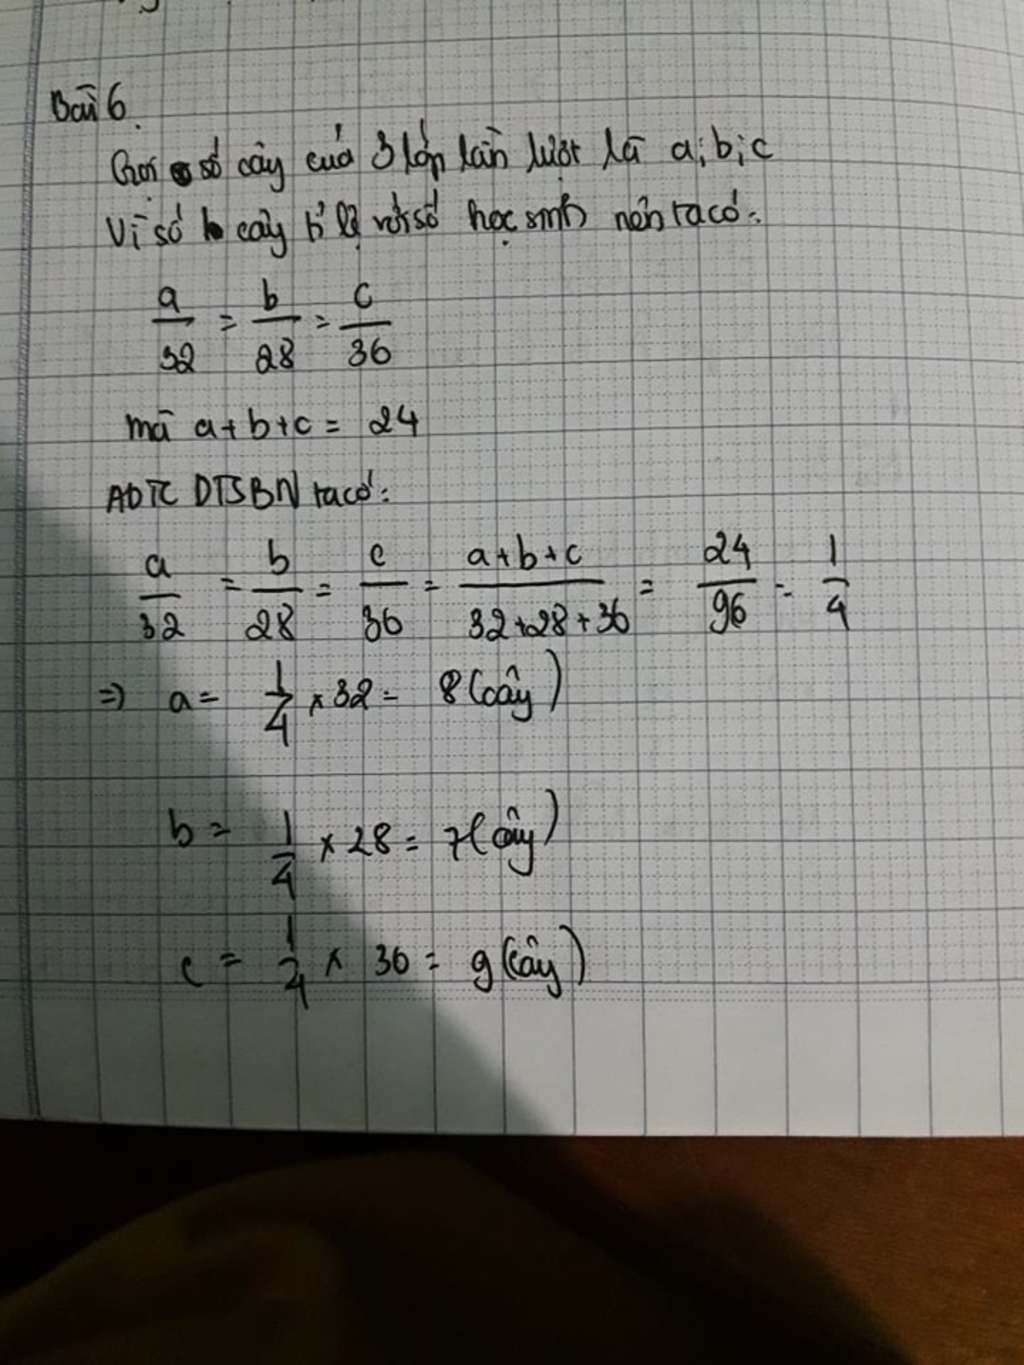 Bài 6
Gọi số cây của 3 lớp lần lượt là a; b; c
Vì số cây tỉ lệ với số học sinh nên ta có:
a/32 = b/28 = c/36
mà a + b + c = 24
ADTC DTSBN ta có:
a/32 = b/28 = c/36 = a+b+c/32+28+36 = 24/96 = 1/4
=> a = 1/4 × 32 = 8 (cây)
b = 1/4 × 28 = 7 (cây)
c = 1/4 × 36 = 9 (cây)